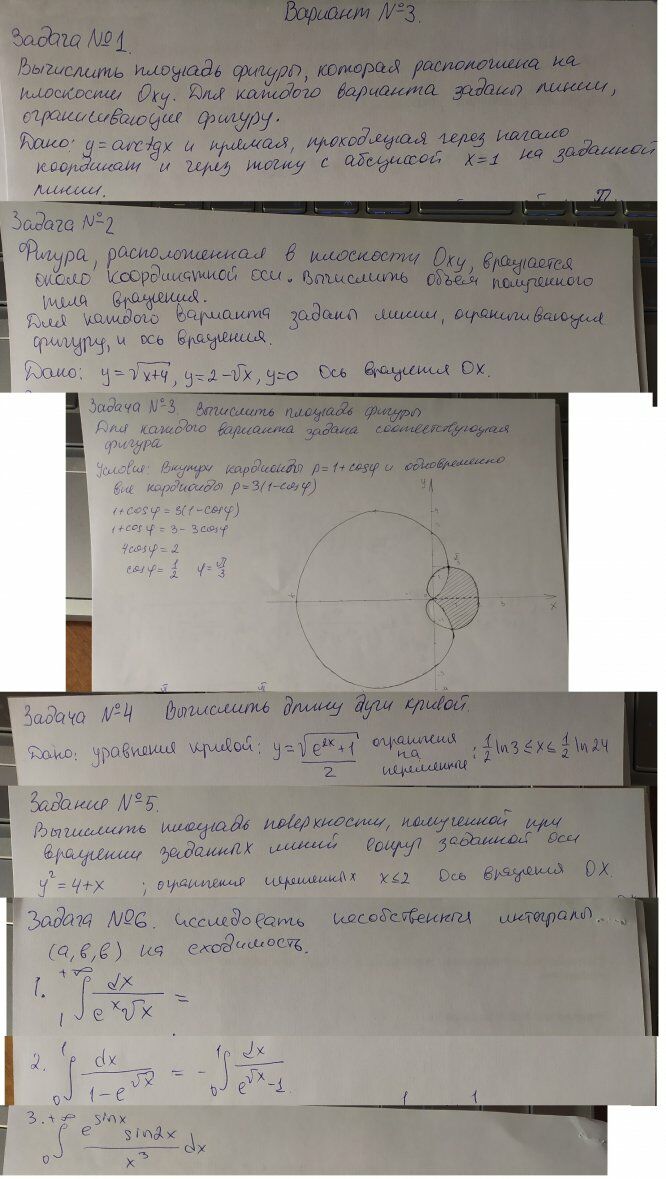 Вариант №3.
Задача №1.
Вычислить площадь фигуры, которая расположена на
плоскости Oxy. Для каждого варианта заданы линии,
ограничивающие фигуру.
Дано: y=arctgx и прямая, проходящая через начало
координат и через точку с абсциссой x=1 на заданной
линии.
Задача №2
Фигура, расположенная в плоскости Oxy, вращается
около координатной оси. Вычислить объём полученного
тела вращения.
Для каждого варианта заданы линии, ограничивающие
фигуру, и ось вращения.
Дано: y=√x+4, y=2-√x, y=0 Ось вращения OX.
Задача №3. Вычислить площадь фигуры
Для каждого варианта задана соответствующая
фигура
Условие: Внутри кардиоиды ρ=1+cosφ и одновременно
вне кардиоиды ρ=3(1-cosφ)
1+cosφ=3(1-cosφ)
1+cosφ=3-3cosφ
4cosφ=2
cosφ=1/2 φ=π/3
y
x
Задача №4 Вычислить длину дуги кривой.
Дано: уравнения кривой: y=√(e^2x+1)/2 ограничения на переменные: 1/2 ln3≤x≤1/2 ln24
Задание №5.
Вычислить площадь поверхности, полученной при
вращении заданных линий вокруг заданной оси
y²=4+x ; ограничения переменных x≤2 Ось вращения OX.
Задача №6. исследовать несобственные интегралы
(а,б,в) на сходимость.
1. ∫₁^+∞ dx/(e^x √x) =
2. ∫₀^1 dx/(1-e^√x) = -∫₀^1 dx/(e^√x-1)
3. ∫₀^+∞ e^sinx sin2x/x³ dx